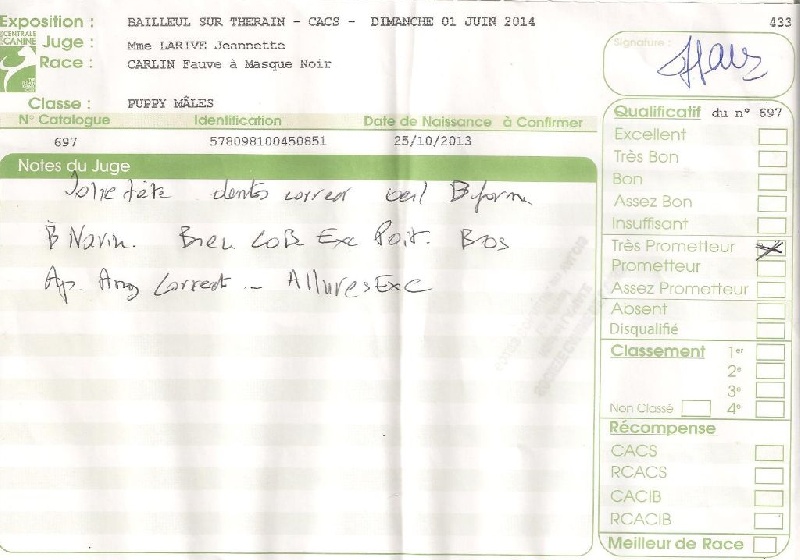 Exposition : BAILLEUL SUR THERAIN - CACS - DIMANCHE 01 JUIN 2014 433
CENTRALE CANINE
Juge : Mme LARIVE Jeannette
Race : CARLIN Fauve à Masque Noir
Classe : PUPPY MÂLES
N° Catalogue Identification Date de Naissance à Confirmer
697 578098100450851 25/10/2013
Notes du Juge
Jolie tête dents correct oeil B forme
B Narin. Bien COB Exc Poit. Bros
Ap. Ang Correct - Allures Exc
Signature :
Qualificatif du n° 697
Excellent
Très Bon
Bon
Assez Bon
Insuffisant
Très Prometteur
Prometteur
Assez Prometteur
Absent
Disqualifié
Classement 1er
2e
3e
Non Classé 4e
Récompense
CACS
RCACS
CACIB
RCACIB
Meilleur de Race